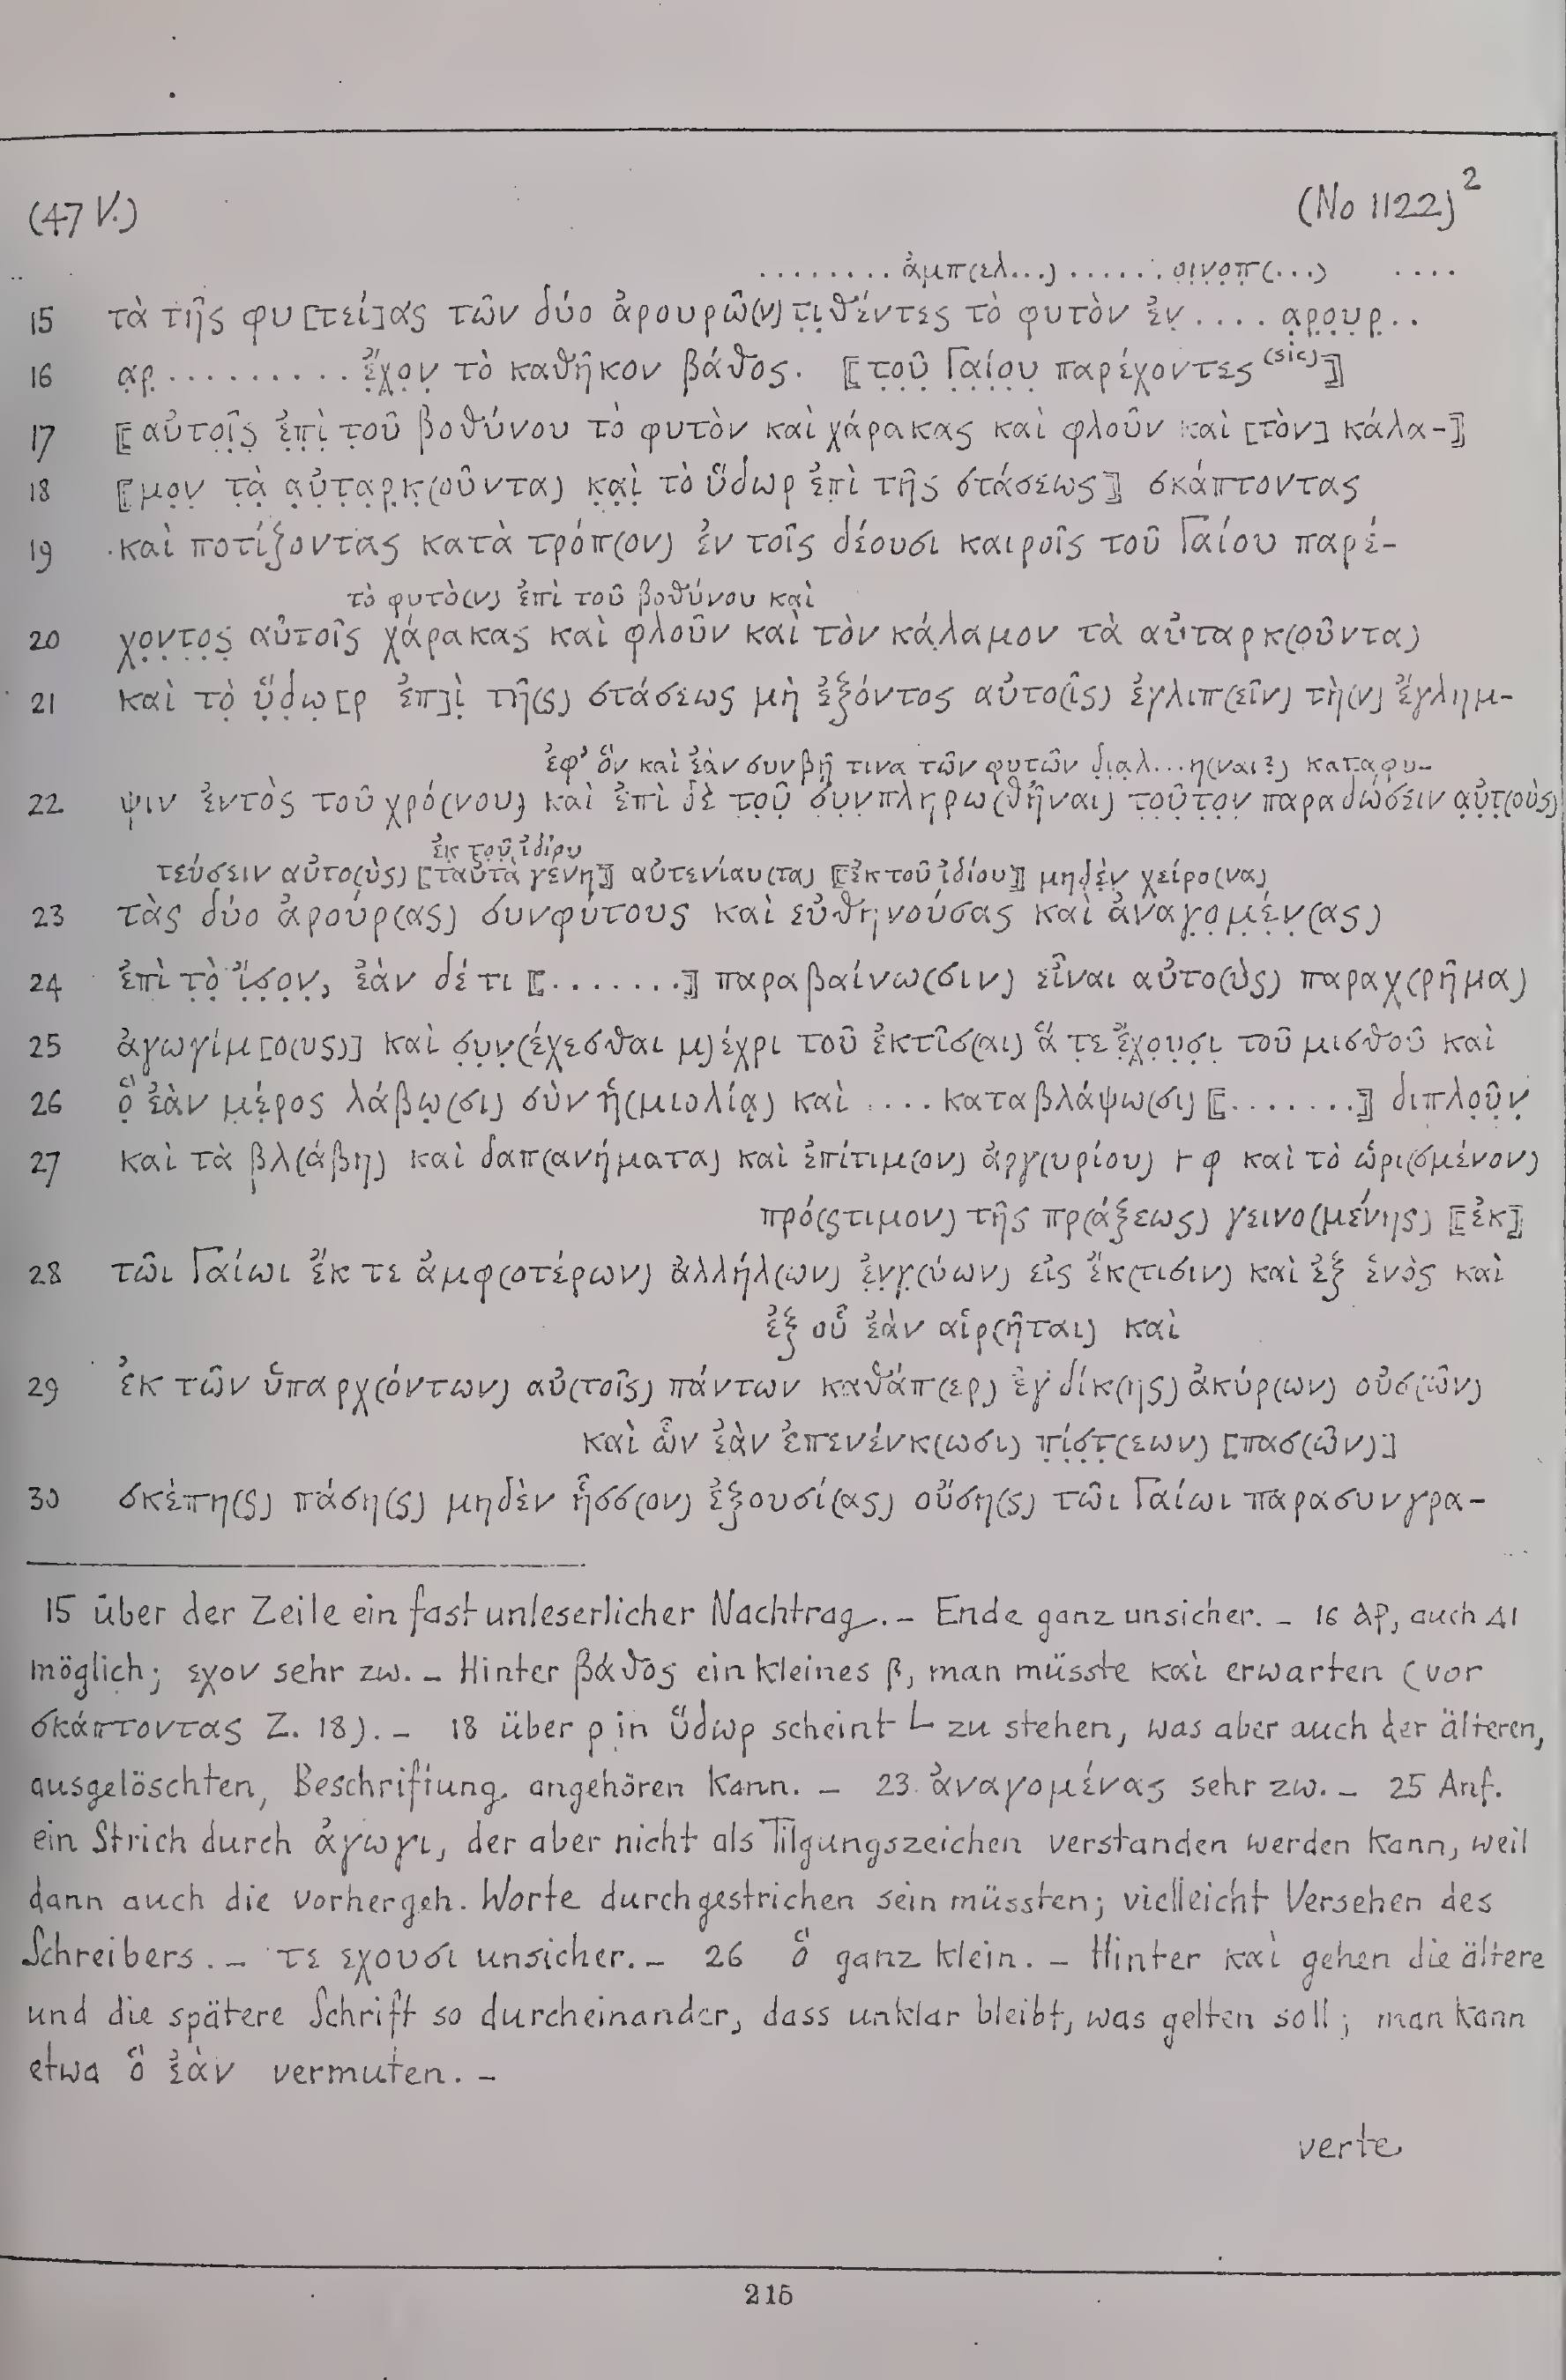 (47 V.) (No 1122)²
........ ἀμπ(ελ...) ...... ο̣ι̣ν̣ο̣π̣(...) ....
15 τὰ τῆς φυ[τεί]ας τῶν δύο ἀρουρῶ(ν) τ̣ι̣θέντες τὸ φυτὸν ἐν̣ .... α̣ρ̣ο̣υ̣ρ̣..
16 α̣ρ̣ .......... ἔ̣χ̣ο̣ν̣ τὸ καθῆκον βάθος. ⟦τ̣ο̣ῦ̣ Γ̣α̣ί̣ο̣υ̣ παρέχοντες (sic)⟧
17 ⟦αὐτο̣ῖ̣ς̣ ἐ̣π̣ὶ̣ τ̣οῦ βοθύνου τὸ φυτὸν καὶ χάρακας καὶ φλοῦν καὶ [τὸν] κάλα-⟧
18 ⟦μ̣ο̣ν̣ τ̣ὰ̣ α̣ὐ̣τ̣α̣ρ̣κ̣(οῦντα) κ̣α̣ὶ̣ τὸ ὕδωρ ἐπὶ τῆς στάσεως⟧ σκάπτοντας
19 καὶ ποτίζοντας κατὰ τρόπ(ον) ἐν τοῖς δέουσι καιροῖς τοῦ Γαίου παρέ-
τὸ φυτὸ(ν) ἐπὶ τοῦ βοθύνου καὶ
20 χ̣ο̣ν̣τ̣ο̣ς̣ αὐτοῖς χάρακας καὶ φλοῦν καὶ τὸν κάλαμον τὰ αὐταρκ(οῦντα)
21 καὶ τὸ̣ ὕ̣δ̣ω̣[ρ ἐπ]ὶ̣ τῆ(ς) στάσεως μὴ ἐξόντος αὐτο(ῖς) ἐγλιπ(εῖν) τὴ(ν) ἔγλημ-
ἐφ’ ὃν καὶ ἐὰν συνβῇ τινα τῶν φυτῶν δ̣ι̣α̣λ̣...η(ναι?) καταφυ-
22 ψιν ἐντὸς τοῦ χρό(νου) καὶ ἐπὶ δὲ τ̣ο̣ῦ̣ σ̣υ̣ν̣πληρω(θῆναι) τ̣ο̣ῦ̣τ̣ο̣ν̣ παραδώσειν α̣ὐ̣τ̣(οὺς)
ἐκ τ̣ο̣ῦ̣ ἰδίου
τεύσειν αὐτο(ὺς) ⟦ταὐτὰ γένη⟧ αὐτενίαυ(τα) ⟦ἐκ τοῦ ἰδίου⟧ μηδὲ̣ν̣ χ̣είρο(να)
23 τὰς δύο ἀρούρ(ας) συνφύτους καὶ εὐθηνούσας καὶ ἀναγ̣ο̣μ̣έ̣ν̣(ας)
24 ἐπὶ τ̣ὸ̣ ἴ̣σ̣ο̣ν̣, ἐὰν δέ τι ⟦.......⟧ παραβαίνω(σιν) εἶναι αὐτο(ὺς) παραχ(ρῆμα)
25 ἀγωγίμ[ο(υς)] καὶ σ̣υ̣ν̣(έχεσθαι μ)έχρι τοῦ ἐκτῖσ(αι) ἅ τ̣ε̣ ἔ̣χ̣ο̣υ̣σ̣ι̣ τοῦ μισθοῦ καὶ
26 ὃ̣ ἐὰν μ̣έ̣ρος λάβω̣(σι) σὺν ἡ(μιολίᾳ) καὶ .... καταβλάψω(σι) ⟦.......⟧ διπλο̣ῦ̣ν̣
27 καὶ τὰ βλ(άβη) καὶ δαπ(ανήματα) καὶ ἐπίτιμ(ον) ἀργ(υρίου) ⊢ φ καὶ τὸ ὡρι(σμένον)
πρό(στιμον) τῆς πρ(άξεως) γεινο(μένης) ⟦ἐκ⟧
28 τῶι Γαίωι ἔκ τε ἀμφ(οτέρων) ἀλλήλ(ων) ἐ̣ν̣γ̣(ύων) εἰς ἔκ(τισιν) καὶ ἐξ ἑνὸς καὶ
ἐξ οὗ ἐὰν αἱρ(ῆται) καὶ
29 ἐκ τῶν ὑπαρχ(όντων) αὐ(τοῖς) πάντων καθάπ(ερ) ἐγ δίκ(ης) ἀκύρ(ων) οὐσ(ῶν)
καὶ ὧν ἐὰν ἐπενένκ(ωσι) π̣ί̣σ̣τ̣(εων) [πασ(ῶν)]
30 σκέπη(ς) πάση(ς) μηδὲν ἧσσ(ον) ἐξουσί(ας) οὔση(ς) τῶι Γαίωι παρασυνγρα-
15 über der Zeile ein fast unleserlicher Nachtrag. – Ende ganz unsicher. – 16 αρ, auch δι
möglich; εχον sehr zw. – Hinter βάθος ein kleines β, man müsste καὶ erwarten (vor
σκάπτοντας Z. 18). – 18 über ρ in ὕδωρ scheint L zu stehen, was aber auch der älteren,
ausgelöschten, Beschriftung angehören kann. – 23 ἀναγομένας sehr zw. – 25 Anf.
ein Strich durch ἀγωγι, der aber nicht als Tilgungszeichen verstanden werden kann, weil
dann auch die vorhergeh. Worte durchgestrichen sein müssten; vielleicht Versehen des
Schreibers. – τε εχουσι unsicher. – 26 ὃ ganz klein. – Hinter καὶ gehen die ältere
und die spätere Schrift so durcheinander, dass unklar bleibt, was gelten soll; man kann
etwa ὃ ἐὰν vermuten. –
verte
215